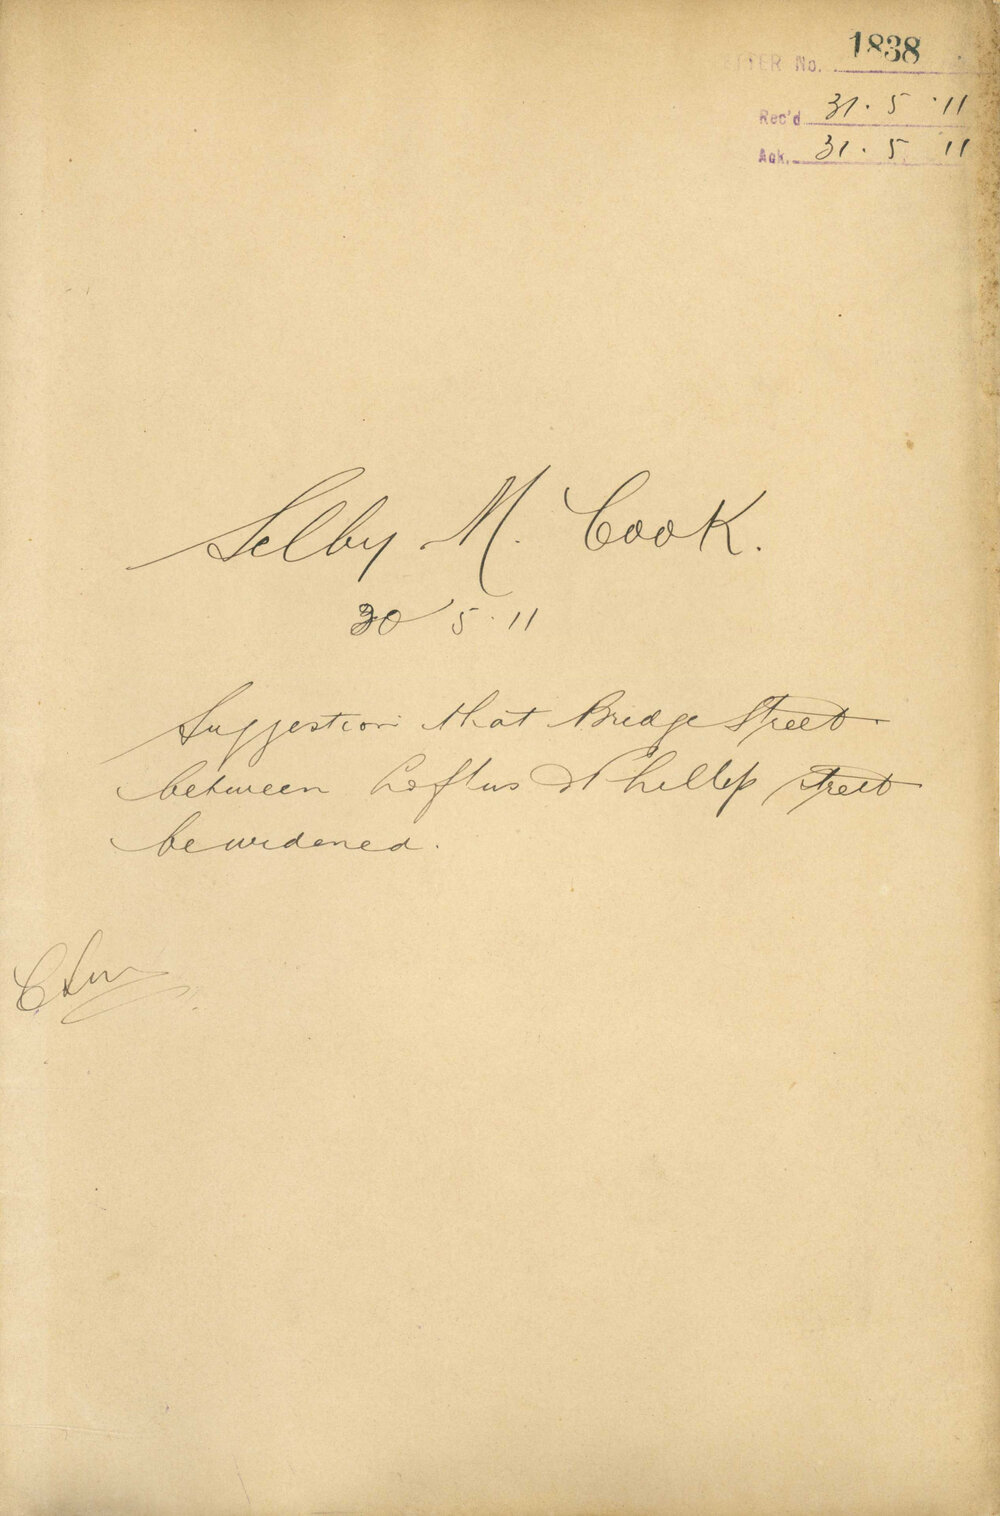 LETTER No. 1838
Rec'd 31·5·11
Ack. 31·5 11
Selby M. Cook.
30 5·11
Suggestion that Bridge Street
between Loftus & Phillip Street
be widened.